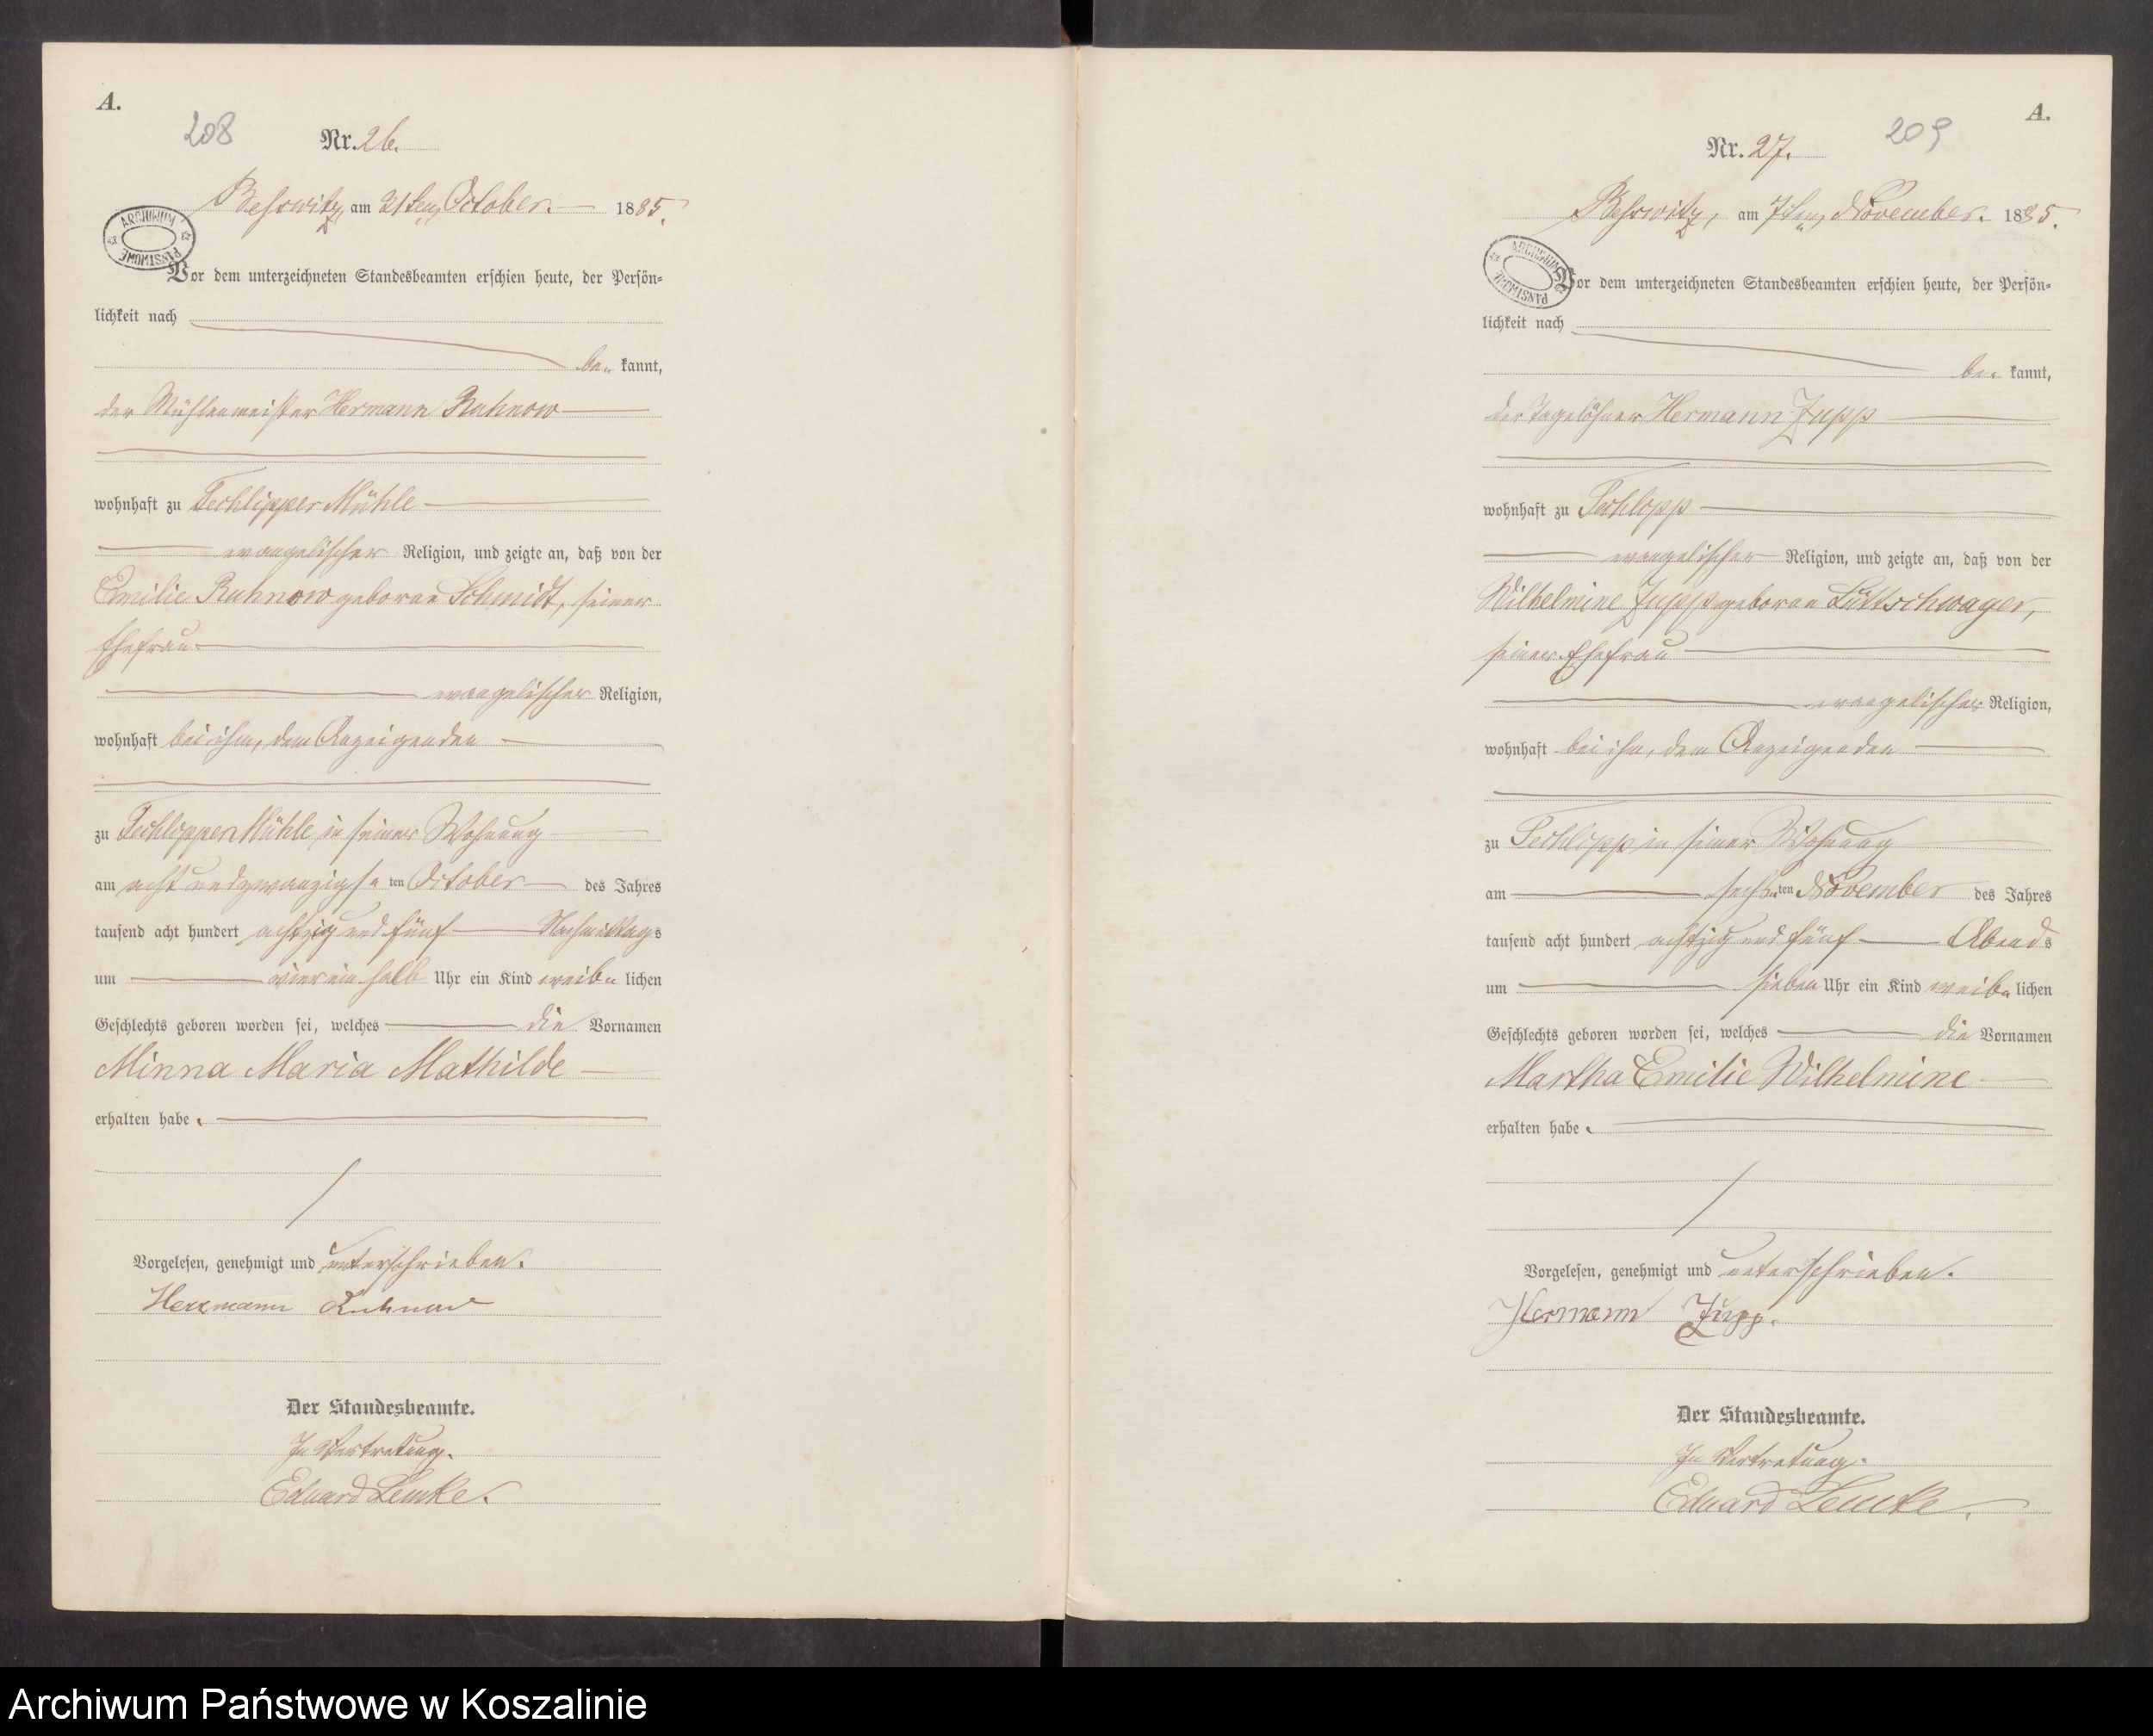 A.
208
Nr. 26.
Beßwitz, am 31ten October. 1885.
ARCHIWUM PAŃSTWOWE
Vor dem unterzeichneten Standesbeamten erschien heute, der Persön-
lichkeit nach
be- kannt,
der Mühlenmeister Hermann Ruhnow
wohnhaft zu Techlipper Mühle
evangelischer Religion, und zeigte an, daß von der
Emilie Ruhnow geboren Schmidt, seiner
Ehefrau
evangelischer Religion,
wohnhaft bei ihm, dem Anzeigenden
zu Techlipper Mühle in seiner Wohnung
am acht und zwanzigsten October des Jahres
tausend acht hundert achtzig und fünf Nachmittags
um vier ein halb Uhr ein Kind weib- lichen
Geschlechts geboren worden sei, welches die Vornamen
Minna Maria Mathilde
erhalten habe.
Vorgelesen, genehmigt und unterschrieben.
Hermann Ruhnow
Der Standesbeamte.
In Vertretung.
Eduard Lemke.
A.
209
Nr. 27.
Beßwitz, am 7ten November. 1885.
ARCHIWUM PAŃSTWOWE
Vor dem unterzeichneten Standesbeamten erschien heute, der Persön-
lichkeit nach
be- kannt,
der Tagelöhner Hermann Jupp
wohnhaft zu Techlipp
evangelischer Religion, und zeigte an, daß von der
Wilhelmine Jupp geboren Lüttschwager,
seiner Ehefrau
evangelischer Religion,
wohnhaft bei ihm, dem Anzeigenden
zu Techlipp in seiner Wohnung
am sechsten November des Jahres
tausend acht hundert achtzig und fünf Abends
um sieben Uhr ein Kind weib- lichen
Geschlechts geboren worden sei, welches die Vornamen
Martha Emilie Wilhelmine
erhalten habe.
Vorgelesen, genehmigt und unterschrieben.
Hermann Jupp.
Der Standesbeamte.
In Vertretung.
Eduard Lemke.
Archiwum Państwowe w Koszalinie